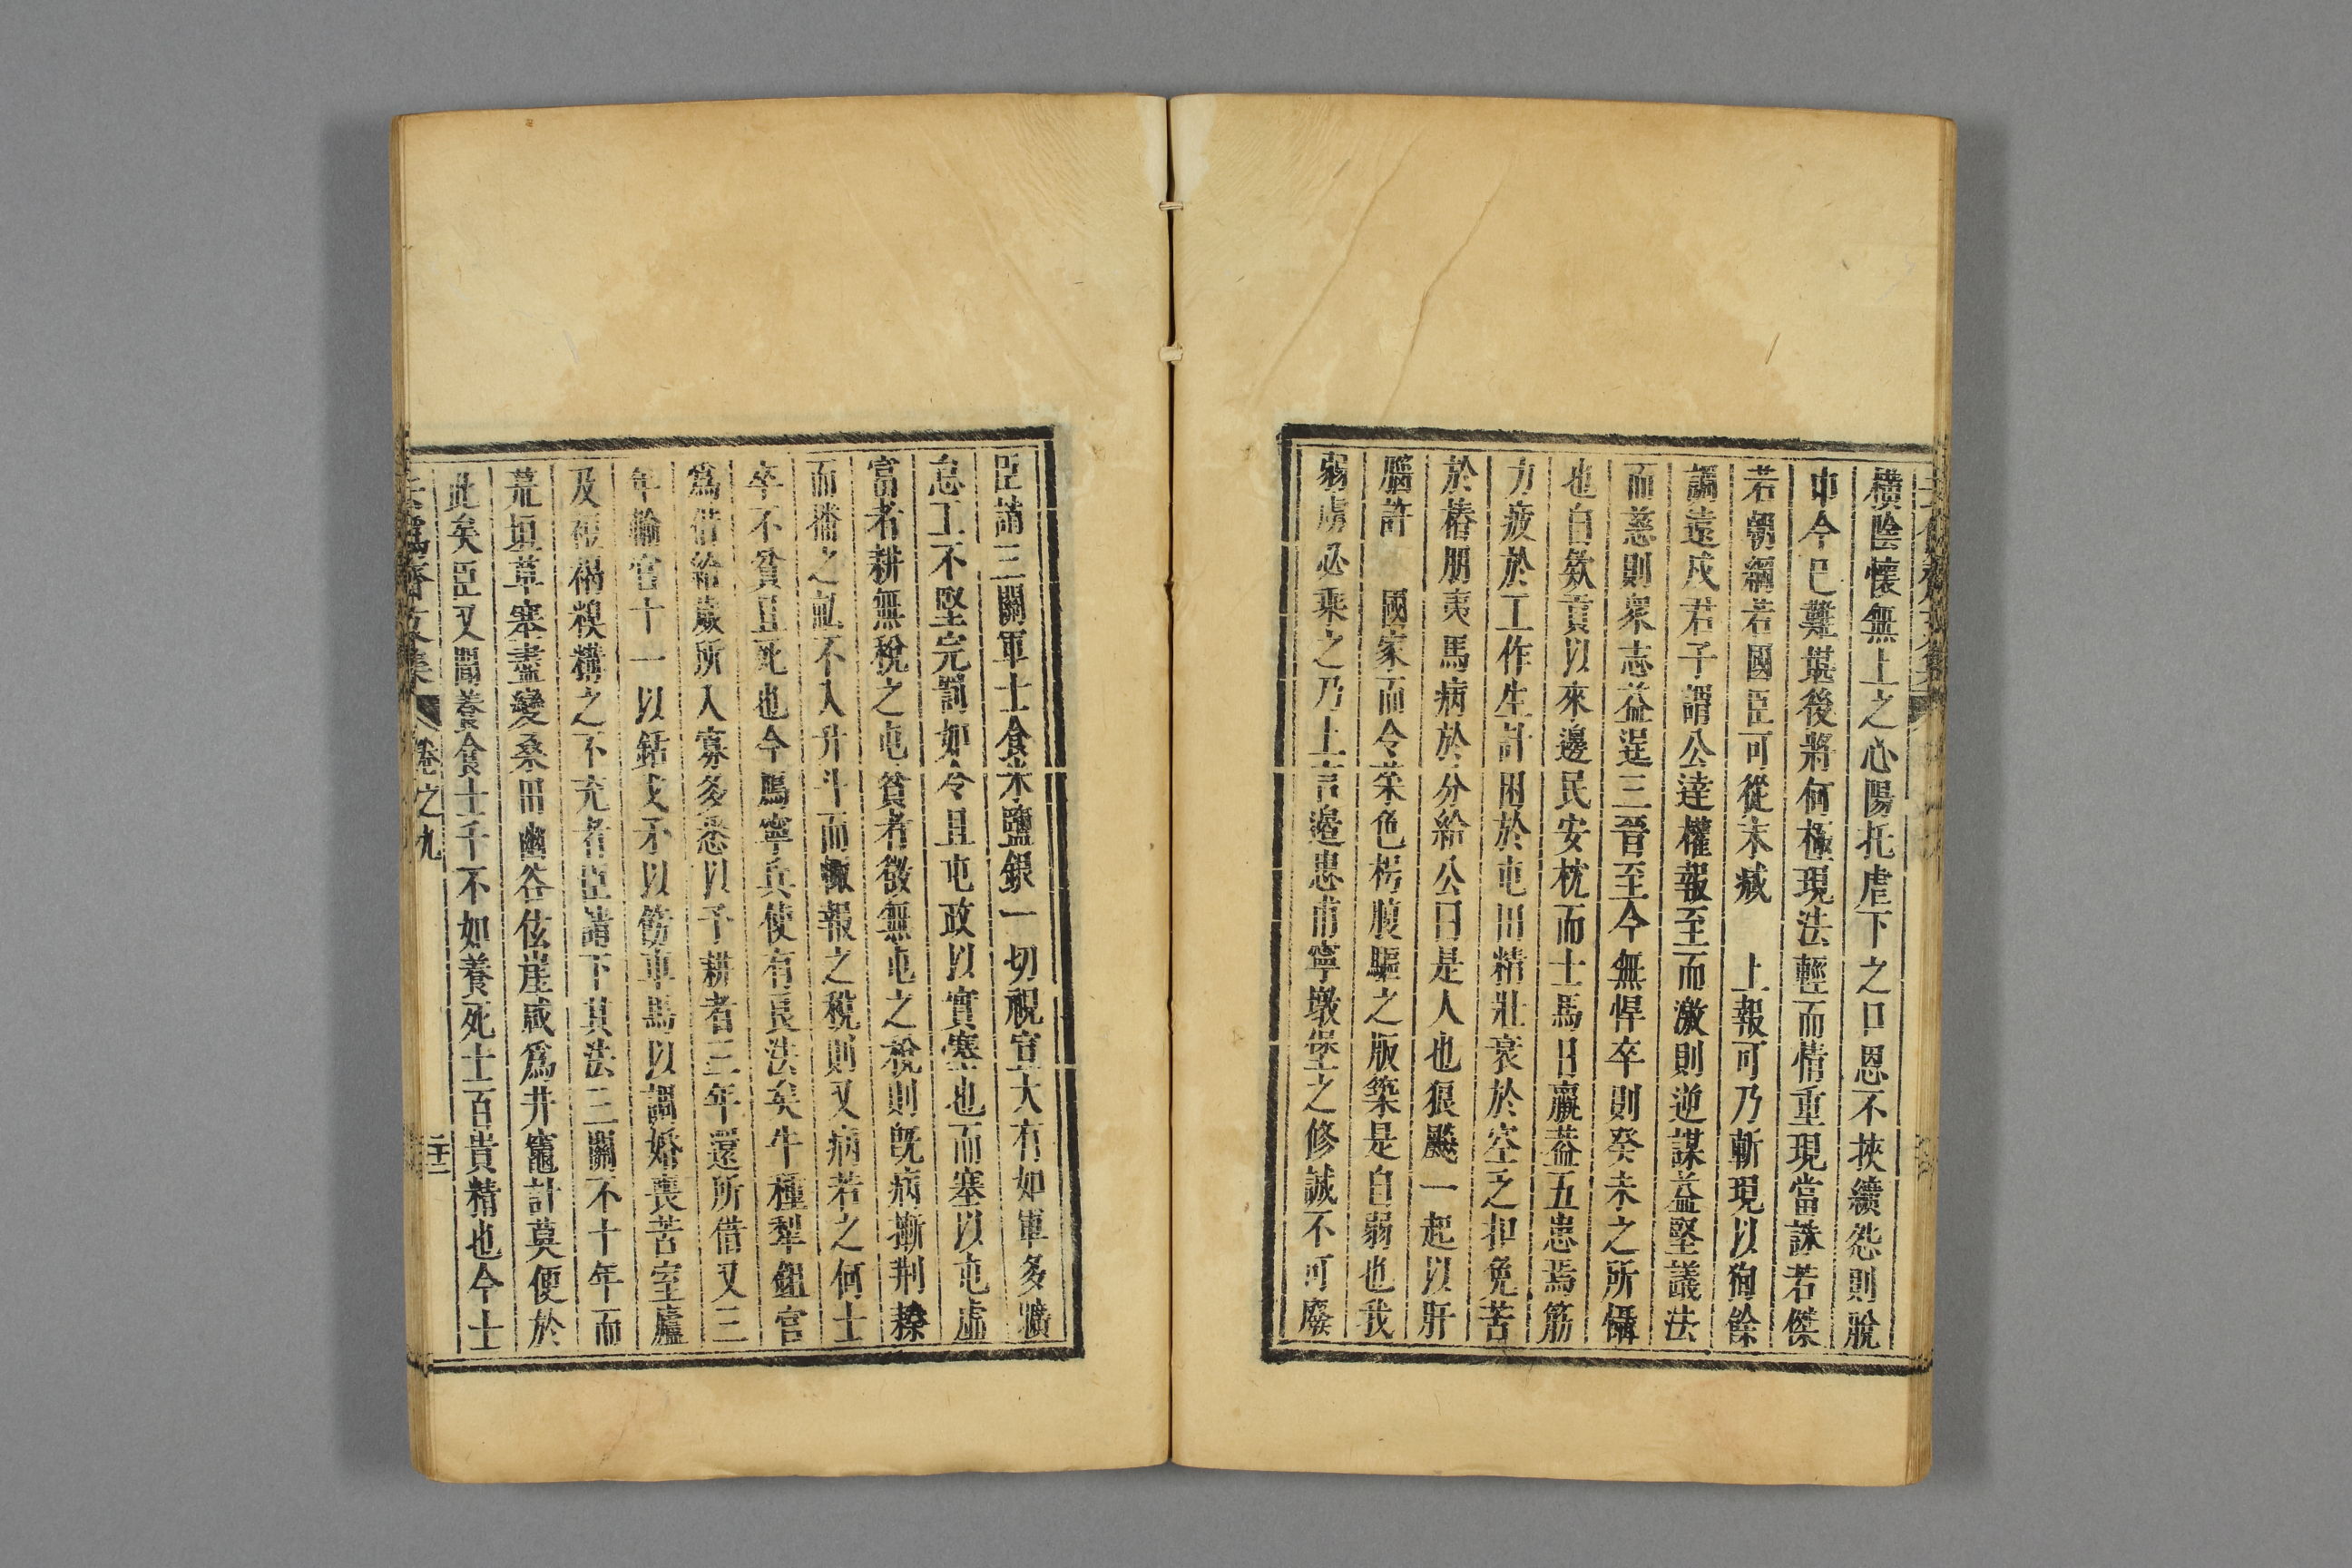 橫陰懷無上之心陽托虐下之口恩不挾纊怨則脫
巾今已難堪後將何極現法輕而情重現當誅若傑
若朝綱若國臣可從末减　上報可乃斬現以狥餘
謫遠戍君子謂公達權報至而激則逆謀益堅議法
而慈則衆志益逞三晉至今無悍卒則癸未之所懾
也自欵貢以來邊民安枕而士馬日羸葢五患焉筋
力疲於工作生計困於屯田精壯衰於空乏扣免苦
於樁朋夷馬病於分給公曰是人也狼飈一起以肝
腦許　國家而令菜色枵腹驅之版築是自弱也我
弱虜必乘之乃上言邊患甫寧墩堡之修誠不可廢
臣請三關軍士食米鹽銀一切視宣大有如軍多曠
怠工不堅完罰如令且屯政以實塞也而塞以屯虛
富者耕無稅之屯貧者徵無屯之稅則旣病撕荆
而播之畝不入升斗而輙報之稅則又病若之何士
卒不貧且死也今馬寧兵使有良法矣牛種犁鉏官
爲借給歲所入寡多悉以予耕者三年還所借又三
年輸官十一以銛戈矛以飭車馬以調婚喪苦室廬
及 禍糗糒之不充者臣請下其法三關不十年而
荒垣草塞盡變桑田幽谷伭崖咸爲井竈計莫便於
此矣臣又聞養食士千不如養死士百貴精也今士
卷之九